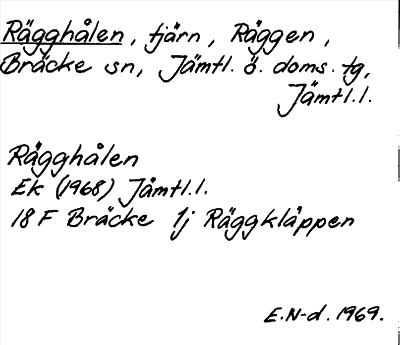 Rägghålen, tjärn, Räggen,
Bräcke sn, Jämtl. ö. doms. tg,
Jämtl. l.
Rägghålen
Ek (1968) Jämtl. l.
18 F Bräcke 1j Räggkläppen
E.N-d. 1969.